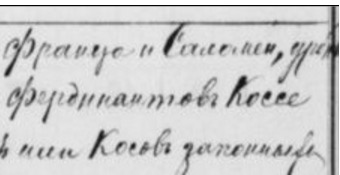 Франца и Саломеи,
Фердинантовъ Коссе
или Косовъ законныхъ